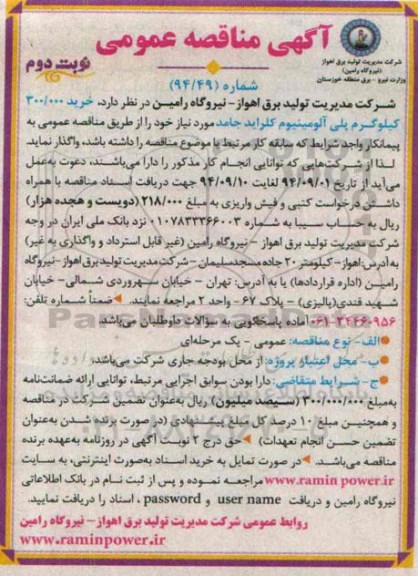 آگهی مناقصه عمومی
شرکت مدیریت تولید برق اهواز
(نیروگاه رامین)
وزارت نیرو - برق منطقه خوزستان
نوبت دوم
شماره (۹۴/۴۹)
شرکت مدیریت تولید برق اهواز - نیروگاه رامین در نظر دارد، خرید ۳۰۰/۰۰۰
کیلوگرم پلی آلومینیوم کلراید جامد مورد نیاز خود را از طریق مناقصه عمومی به
پیمانکار واجد شرایط که سابقه کار مرتبط با موضوع مناقصه را داشته باشد، واگذار نماید.
لذا از شرکت‌هایی که توانایی انجام کار مذکور را دارا می‌باشند، دعوت به‌عمل
می‌آید از تاریخ ۹۴/۰۹/۰۱ لغایت ۹۴/۰۹/۱۰ جهت دریافت اسناد مناقصه با همراه
داشتن درخواست کتبی و فیش واریزی به مبلغ ۲۱۸/۰۰۰ (دویست و هجده هزار)
ریال به حساب سیبا به شماره ۰۱۰۷۸۳۳۳۶۶۰۰۳ نزد بانک ملی ایران در وجه
شرکت مدیریت تولید برق اهواز - نیروگاه رامین (غیر قابل استرداد و واگذاری به غیر)
به آدرس: اهواز - کیلومتر ۲۰ جاده مسجدسلیمان - شرکت مدیریت تولید برق اهواز - نیروگاه
رامین (اداره قراردادها) یا به آدرس: تهران - خیابان سهروردی شمالی - خیابان
شهید قندی (پالیزی) - پلاک ۶۷ - واحد ۲ مراجعه نمایند. ◄ضمناً شماره تلفن:
۰۶۱-۳۴۴۶۰۹۵۶ آماده پاسخگویی به سؤالات داوطلبان می‌باشد.
الف- نوع مناقصه: عمومی - یک مرحله‌ای
ب- محل اعتبار پروژه: از محل بودجه جاری شرکت می‌باشد.
ج- شرایط متقاضی: دارا بودن سوابق اجرایی مرتبط، توانایی ارائه ضمانت‌نامه
به‌مبلغ ۳۰۰/۰۰۰/۰۰۰ (سیصد میلیون) ریال به‌عنوان تضمین شرکت در مناقصه
و همچنین مبلغ ۱۰ درصد کل مبلغ پیشنهادی (در صورت برنده شدن به‌عنوان
تضمین حسن انجام تعهدات) ◄حق درج ۲ نوبت آگهی در روزنامه به‌عهده برنده
مناقصه می‌باشد. ◄در صورت تمایل به خرید اسناد به‌صورت اینترنتی، به سایت
www.ramin power.ir مراجعه نموده و پس از ثبت نام در بانک اطلاعاتی
نیروگاه رامین و دریافت user name و password ، اسناد را دریافت نمایید.
روابط عمومی شرکت مدیریت تولید برق اهواز - نیروگاه رامین
www.raminpower.ir